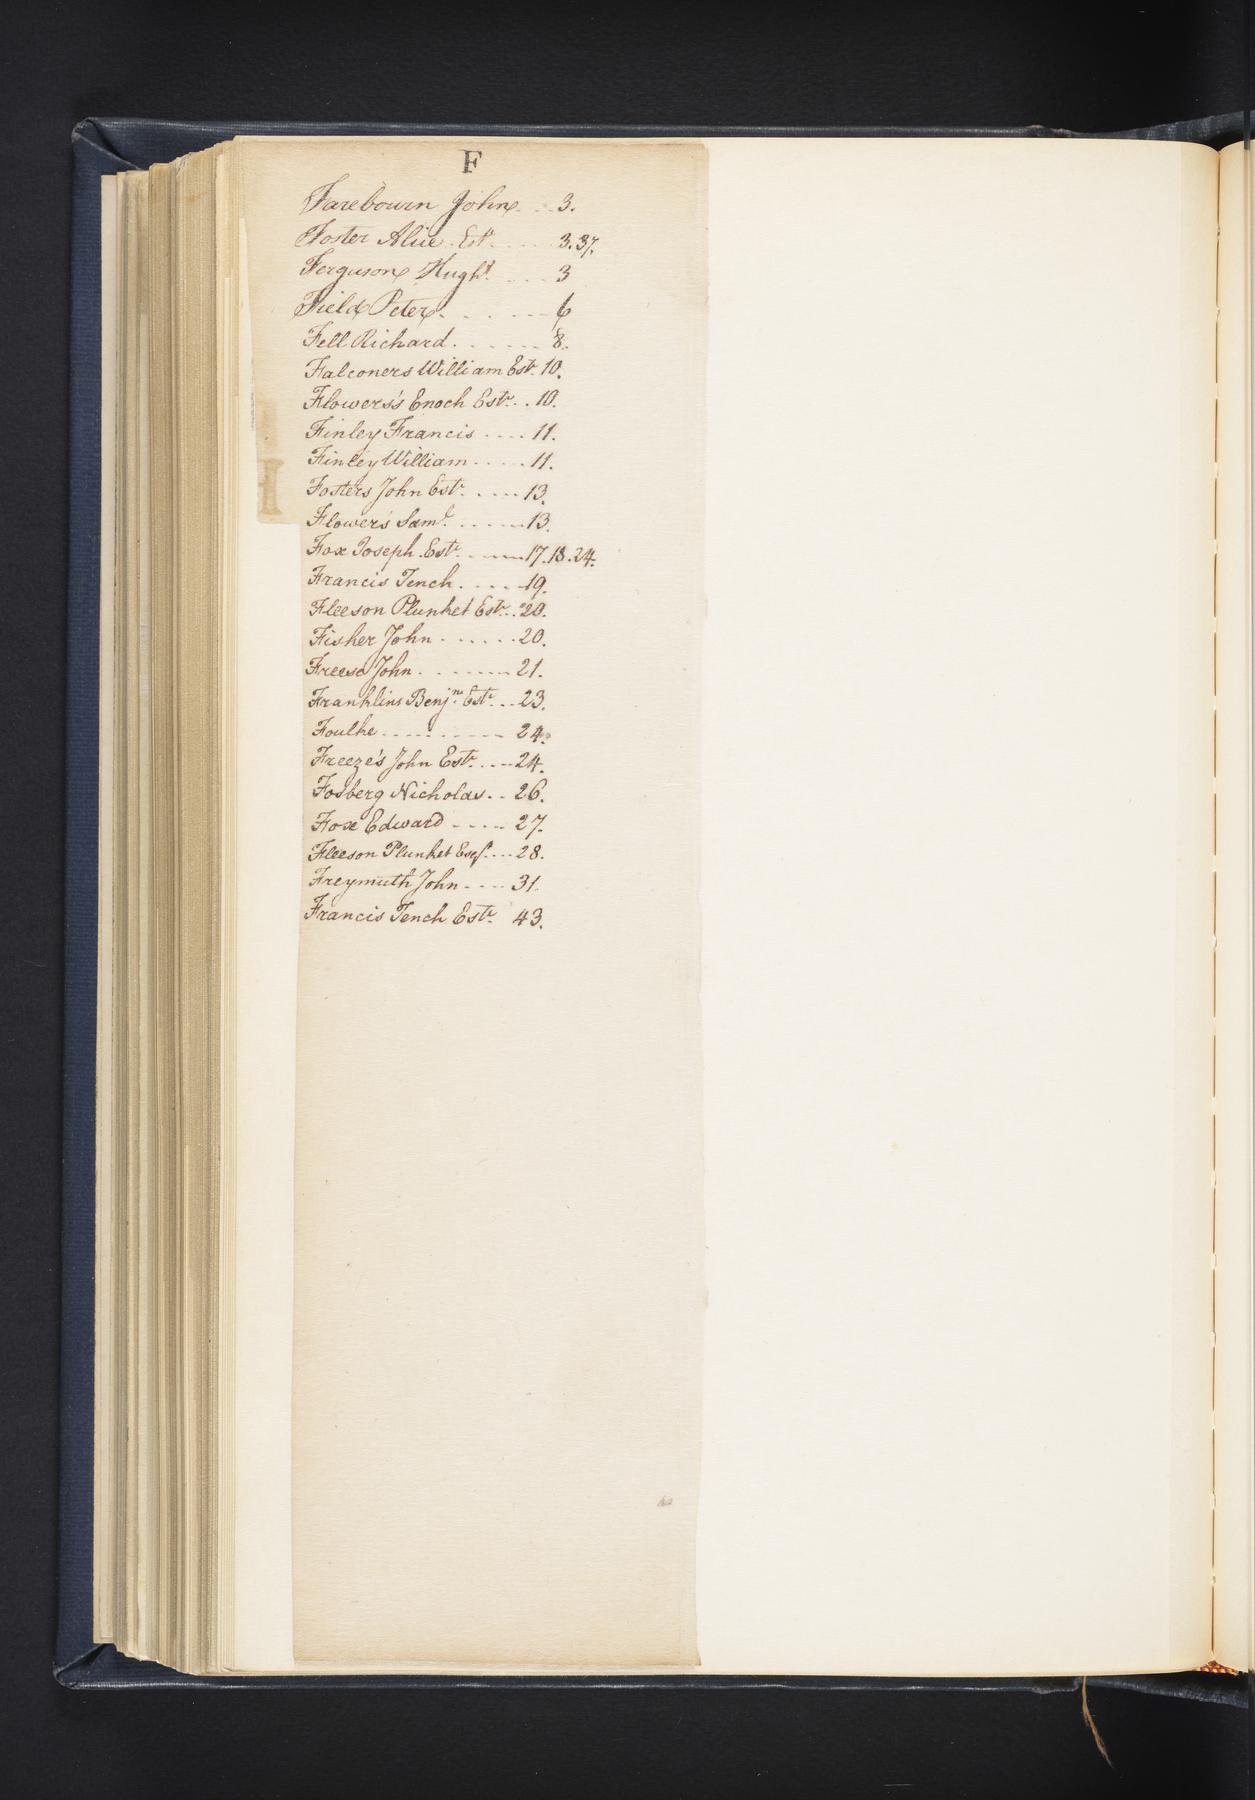 F
Farebourn John .. 3.
Foster Alice . Estr. ..... 3.37.
Ferguson Hugh ..... 3
Field Peter ....... 6
Fell Richard ....... 8.
Falconers William Estr. 10.
Flowers's Enoch Estr. . 10.
Finley Francis .... 11.
Finley William ..... 11.
Fosters John Estr. .... 13.
Flower's Saml. ...... 13.
Fox Joseph . Estr. ..... 17.18.24.
Francis Tench ..... 19.
Fleeson Plunket Estr. .. 20.
Fisher John ...... 20.
Freese John ....... 21.
Franklins Benjn. Estr. .. 23.
Foulke .......... 24.
Freeze's John Estr. .... 24.
Fosberg Nicholas .. 26.
Fox Edward ..... 27.
Fleeson Plunket Esqr. ... 28.
Freymuth John .... 31.
Francis Tench Estr. 43.